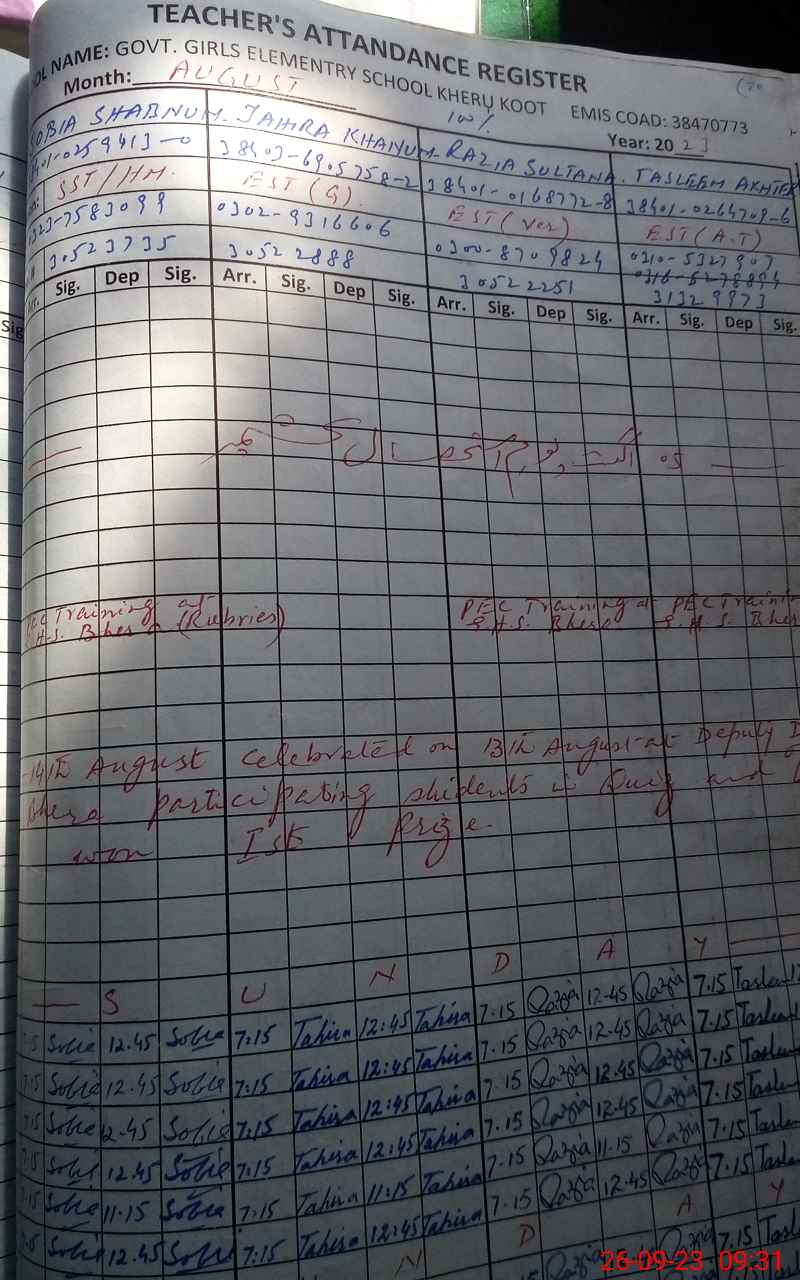 TEACHER'S ATTANDANCE REGISTER
OL NAME: GOVT. GIRLS ELEMENTRY SCHOOL KHERU KOOT EMIS COAD: 38470773
Month: AUGUST 100% Year: 2023
OBIA SHABNUM. TAHIRA KHANUM. RAZIA SULTANA. TASLEEM AKHTER
401-0259413-0 38403-6905758-2 38401-0168772-8 38401-0264709-6
SST/HM. EST(G) EST(Ver) EST(A.T)
323-7583099 0302-9316606 0300-8709824 0310-5327907
0316-5278894
30523735 30522888 30522251 31329973
Sig. Dep Sig. Arr. Sig. Dep Sig. Arr. Sig. Dep Sig. Arr. Sig. Dep Sig.
PEC Training at PEC Training at PEC Trainin
G.H.S. Bhera (Rubries) G.H.S. Bhera G.H.S. Bher
14th August celebrated on 13th August at Deputy
Bhera participating students in Quiz and
won Ist Prize.
S U N D A Y
7:15 Sobie 12.45 Sobie 7:15 Tahira 12:45 Tahira 7.15 Qazia 12.45 Qazia 7.15 Taslee
7:15 Sobie 12.45 Sobie 7:15 Tahira 12:45 Tahira 7.15 Qazia 12.45 Qazia 7.15 Taslee
7:15 Sobie 12.45 Sobie 7:15 Tahira 12:45 Tahira 7.15 Qazia 12.45 Qazia 7.15 Taslee
7:15 Sobie 12.45 Sobie 7:15 Tahira 12:45 Tahira 7.15 Qazia 12.45 Qazia 7.15 Taslee
7:15 Sobie 11.15 Sobie 7:15 Tahira 11:15 Tahira 7.15 Qazia 11.15 Qazia 7.15 Taslee
Sobie 12.45 Sobie 7:15 Tahira 12:45 Tahira 7.15 Qazia 12.45 Qazia 7.15 Taslee
N D A Y
26-09-23 09:31